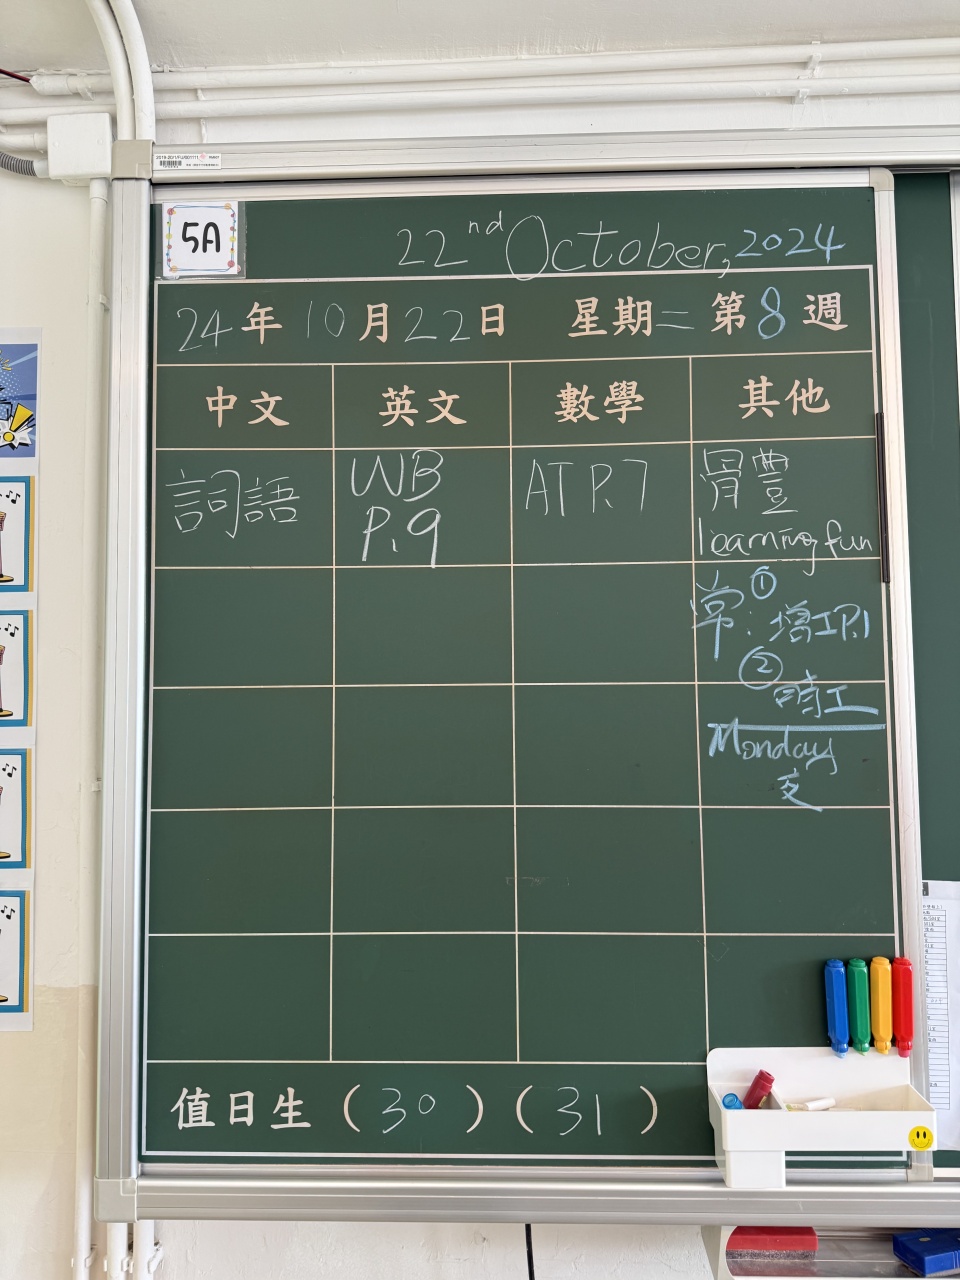 5A
22nd October, 2024
24年10月22日 星期二 第8週
中文 英文 數學 其他
詞語
WB
P.9
AT P.7
learning fun
①
常:增工P.1
②
工
Monday
交
值日生(30)(31)